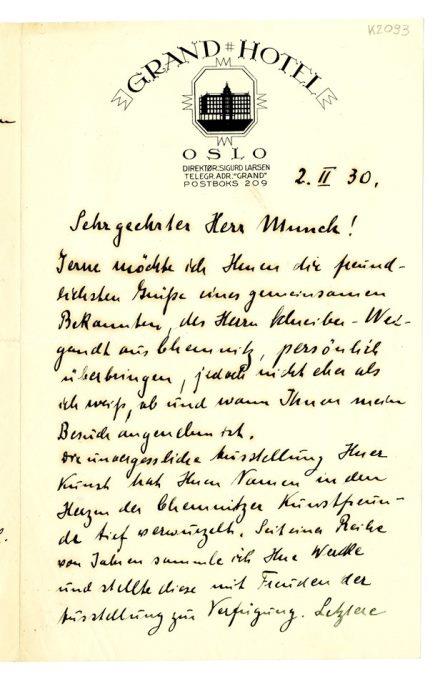 K2093
GRAND HOTEL
OSLO
DIREKTØR: SIGURD LARSEN
TELEGR. ADR. "GRAND"
POSTBOKS 209
2. II 30.
Sehrgeehrter Herr Munch!
Gerne möchte ich Ihnen die freund-
lichsten Grüße eines gemeinsamen
Bekannten, des Herrn Schreiber-Wei-
gandt aus Chemnitz, persönlich
überbringen, jedoch nicht eher als
ich weiß, ob und wann Ihnen mein
Besuch angenehm ist.
Die unvergessliche Ausstellung Ihrer
Kunst hat Ihren Namen in den
Herzen der Chemnitzer Kunstfreun-
de tief verwurzelt. Seit einer Reihe
von Jahren sammle ich Ihre Werke
und stellte diese mit Freuden der
Ausstellung zur Verfügung. Letztere